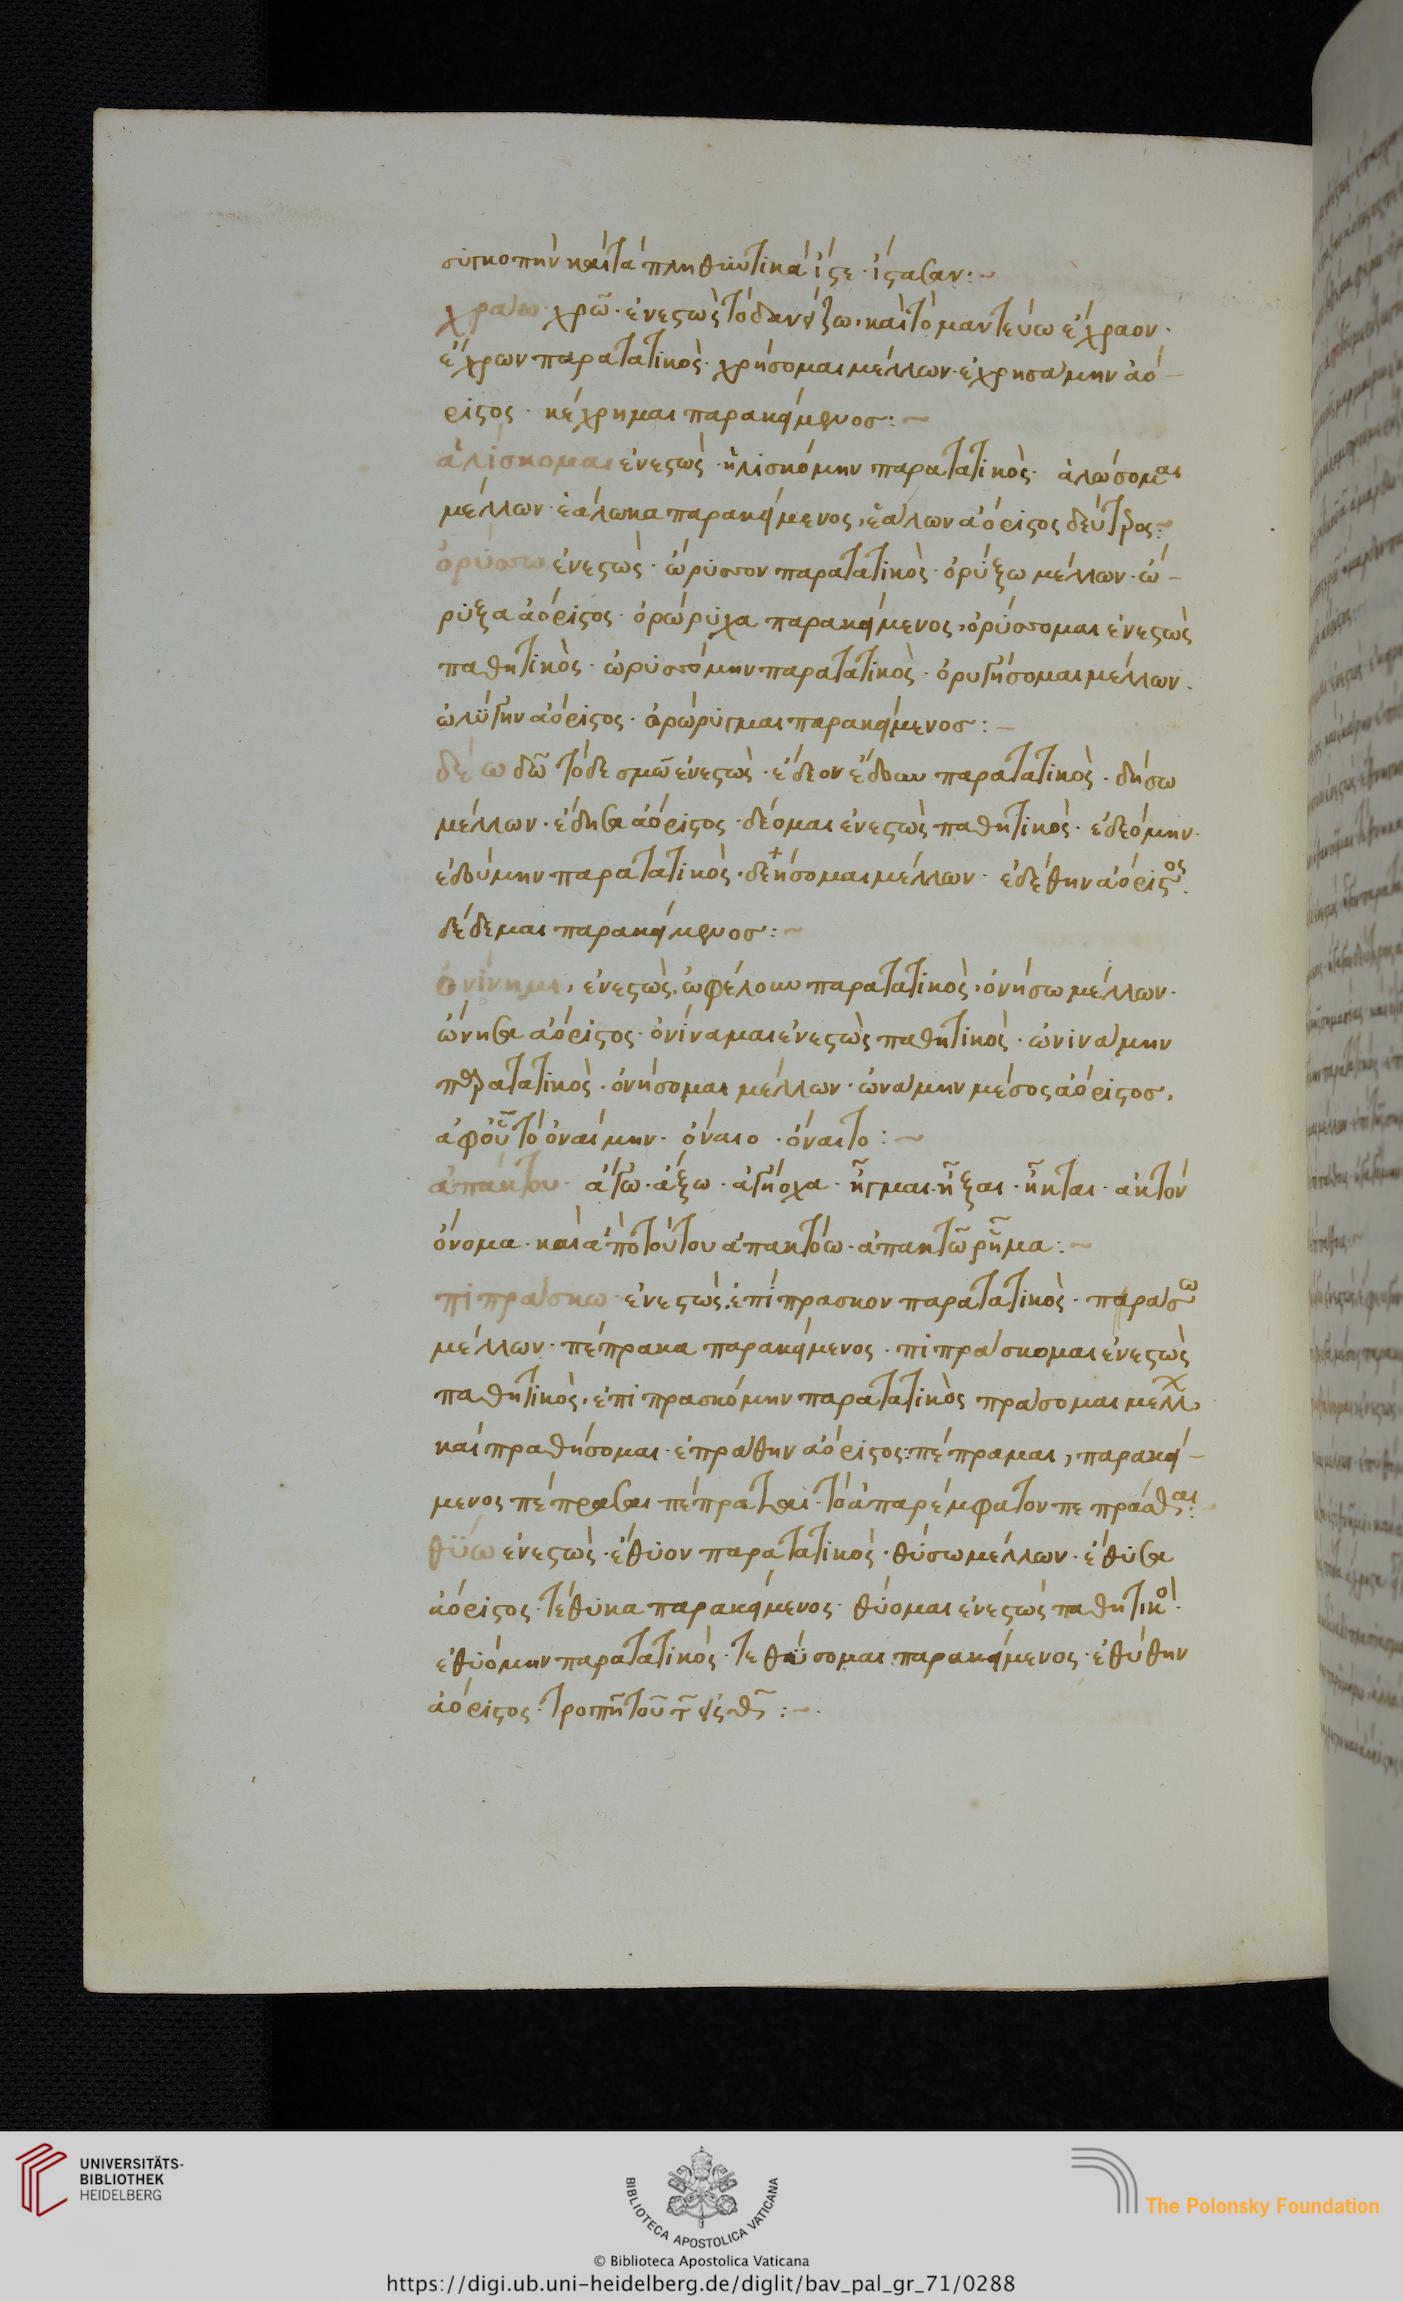 συγκοπὴν καὶ τὰ πληθυντικὰ ἴστε · ἴσασαν :~
χράω · χρῶ · ἐνεστὼς τὸ δανείζω · καὶ τὸ μαντεύω ἔχραον ·
ἔχρων παρατατικὸς · χρήσομαι μέλλων · ἐχρησάμην ἀό-
ριστος · κέχρημαι παρακείμενος :~
ἁλίσκομαι ἐνεστὼς · ἡλισκόμην παρατατικὸς · ἁλώσομαι
μέλλων · ἑάλωκα παρακείμενος, ἑάλων ἀόριστος δεύτερος :~
ὀρύσσω ἐνεστὼς · ὤρυσσον παρατατικὸς · ὀρύξω μέλλων · ὤ-
ρυξα ἀόριστος · ὀρώρυχα παρακείμενος, ὀρύσσομαι ἐνεστὼς
παθητικὸς · ὠρυσσόμην παρατατικὸς · ὀρυγήσομαι μέλλων ·
ὠλύγην ἀόριστος · ὀρώρυγμαι παρακείμενος :~
δέω δῶ τὸ δεσμῶ ἐνεστὼς · ἔδεον ἔδουν παρατατικὸς · δήσω
μέλλων · ἔδησα ἀόριστος · δέομαι ἐνεστὼς παθητικὸς · ἐδεόμην ·
ἐδούμην παρατατικὸς · δεήσομαι μέλλων · ἐδέθην ἀόριστος ·
δέδεμαι παρακείμενος :~
ὀνίνημι, ἐνεστὼς, ὠφέλουν παρατατικὸς, ὀνήσω μέλλων ·
ὤνησα ἀόριστος · ὀνίναμαι ἐνεστὼς παθητικὸς · ὠνινάμην
παρατατικὸς · ὀνήσομαι μέλλων · ὠνάμην μέσος ἀόριστος,
ἀφ οὗ τὸ ὀναίμην · ὄναιο · ὄναιτο :~
ἀπάκτου · ἄγω · ἄξω · ἀγήοχα · ἦγμαι · ἦξαι · ἦκται · ἀκτὸν
ὄνομα · καὶ ἀπὸ τούτου ἀπακτόω · ἀπακτῶ ῥῆμα :~
πιπράσκω · ἐνεστὼς, ἐπίπρασκον παρατατικὸς · παράσω
μέλλων · πέπρακα παρακείμενος · πιπράσκομαι ἐνεστὼς
παθητικὸς, ἐπιπρασκόμην παρατατικὸς πράσομαι μελλ,
καὶ πραθήσομαι · ἐπράθην ἀόριστος : πέπραμαι, παρακεί-
μενος πέπρασαι πέπραται · τὸ ἀπαρέμφατον πεπράσθαι :
θύω ἐνεστὼς · ἔθυον παρατατικὸς · θύσω μέλλων · ἔθυσα
ἀόριστος · τέθυκα παρακείμενος · θύομαι ἐνεστὼς παθητικὸ ·
ἐθυόμην παρατατικὸς · τεθύσομαι παρακείμενος · ἐθύθην
ἀόριστος · τροπῇ τοῦ :~
UNIVERSITÄTS-
BIBLIOTHEK
HEIDELBERG
BIBLIOTECA APOSTOLICA VATICANA
The Polonsky Foundation
© Biblioteca Apostolica Vaticana
https://digi.ub.uni-heidelberg.de/diglit/bav_pal_gr_71/0288